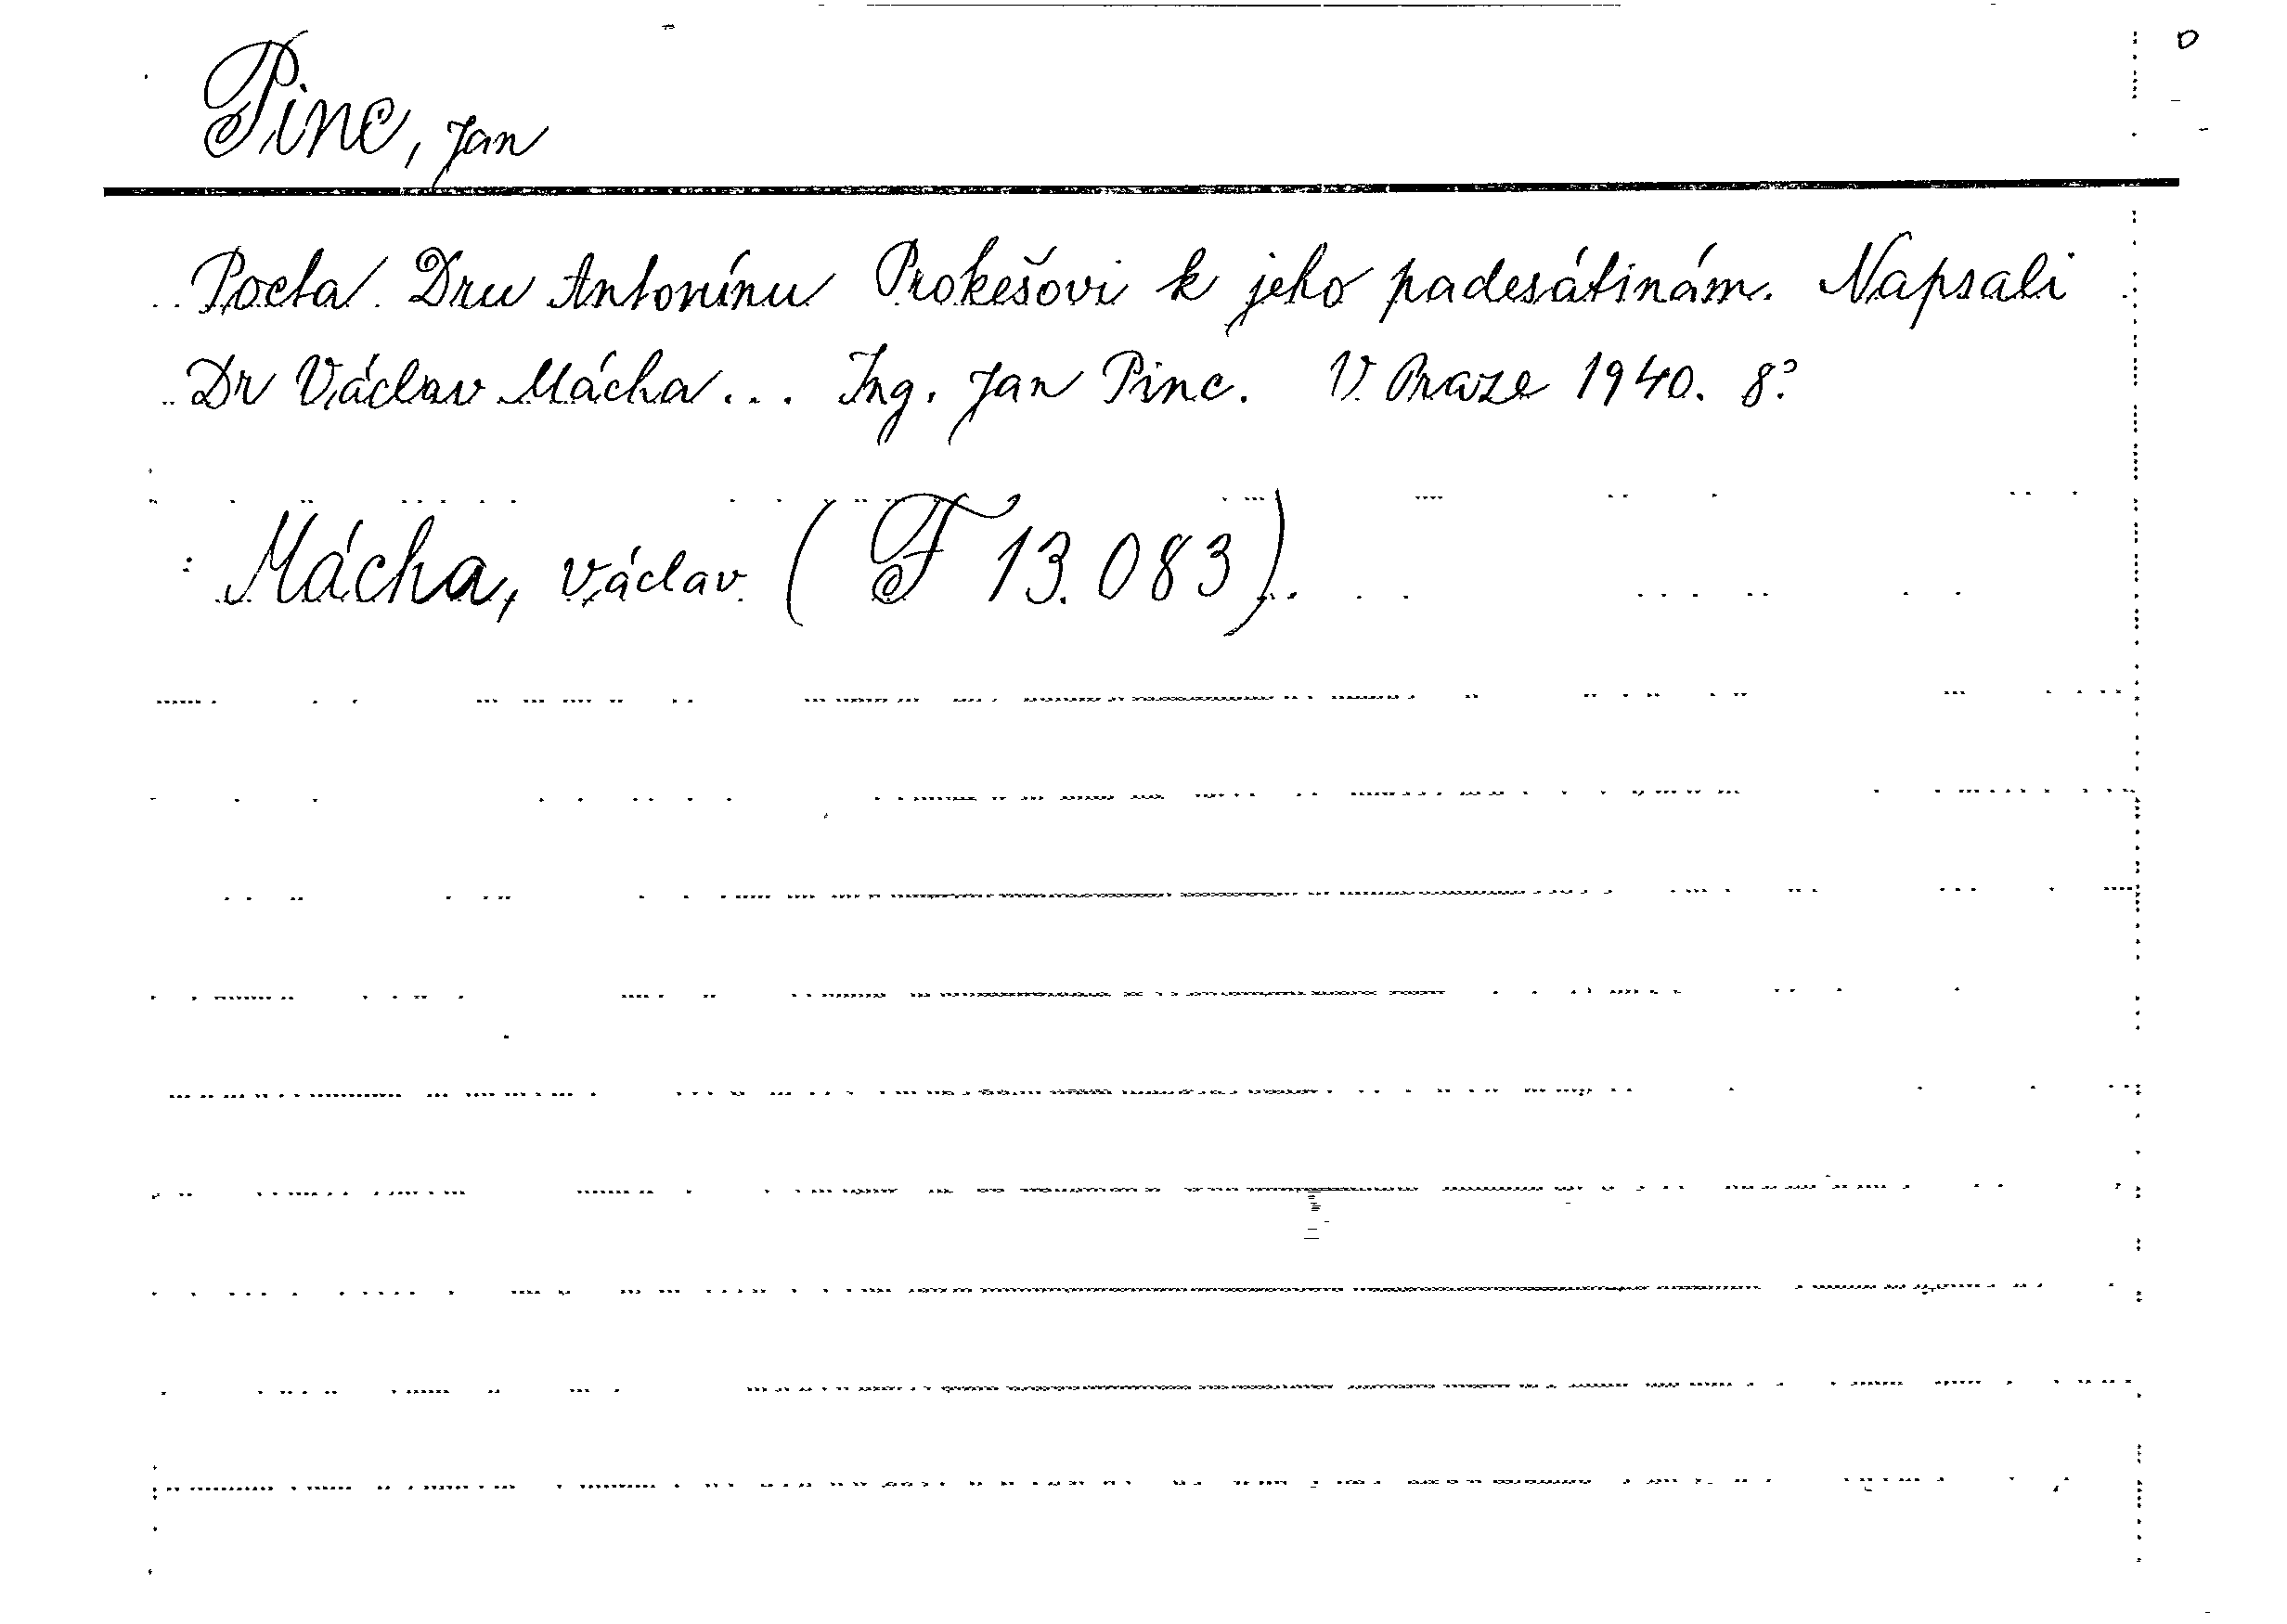 Pinc, Jan
Pocta Dru Antonínu Prokešovi k jeho padesátinám. Napsali
Dr Václav Mácha... Ing. Jan Pinc. V Praze 1940. 8°
Mácha, Václav (F 13.083).